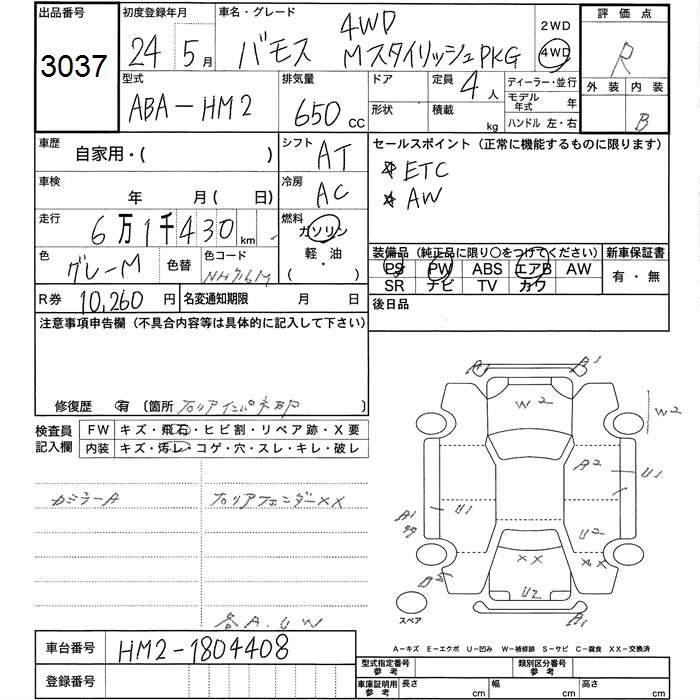 出品番号 3037
初度登録年月 24年 5月
車名・グレード バモス 4WD MスタイリッシュPKG
2WD 4WD
評価点 R
外装 内装 B
型式 ABA-HM2
排気量 650 cc
ドア 形状
定員 4人
積載 kg
ディーラー・並行
モデル年式 年
ハンドル 左・右
車歴 自家用・( )
シフト AT
セールスポイント(正常に機能するものに限ります)
＊ETC
＊AW
車検 年 月( 日)
冷房 AC
走行 6万1千430 km
燃料 ガソリン 軽・油 ( ・ )
色 グレーM 色替 色コード NH716M
装備品(純正品に限り○をつけてください) 新車保証書
PS PW ABS エアB AW 有・無
SR ナビ TV カワ
R券 10,260円 名変通知期限 月 日
後日品
注意事項申告欄(不具合内容等は具体的に記入して下さい)
修復歴 有 〔箇所 右リアインパネ部 〕
検査員記入欄
FW キズ・飛石・ヒビ割・リペア跡・X要
内装 キズ・汚レ・コゲ・穴・スレ・キレ・破レ
右リアフェンダーXX
各A.UW
A1 B1
W2 W2
A2 U1
A1 U1
U2
XX XX
U2
A1 B1
スペア
A-キズ E-エクボ U-凹み W-補修跡 S-サビ C-腐食 XX-交換済
車台番号 HM2-1804408
登録番号
型式指定番号 参考 類別区分番号 参考
車庫証明用 参考 長さ cm 幅 cm 高さ cm